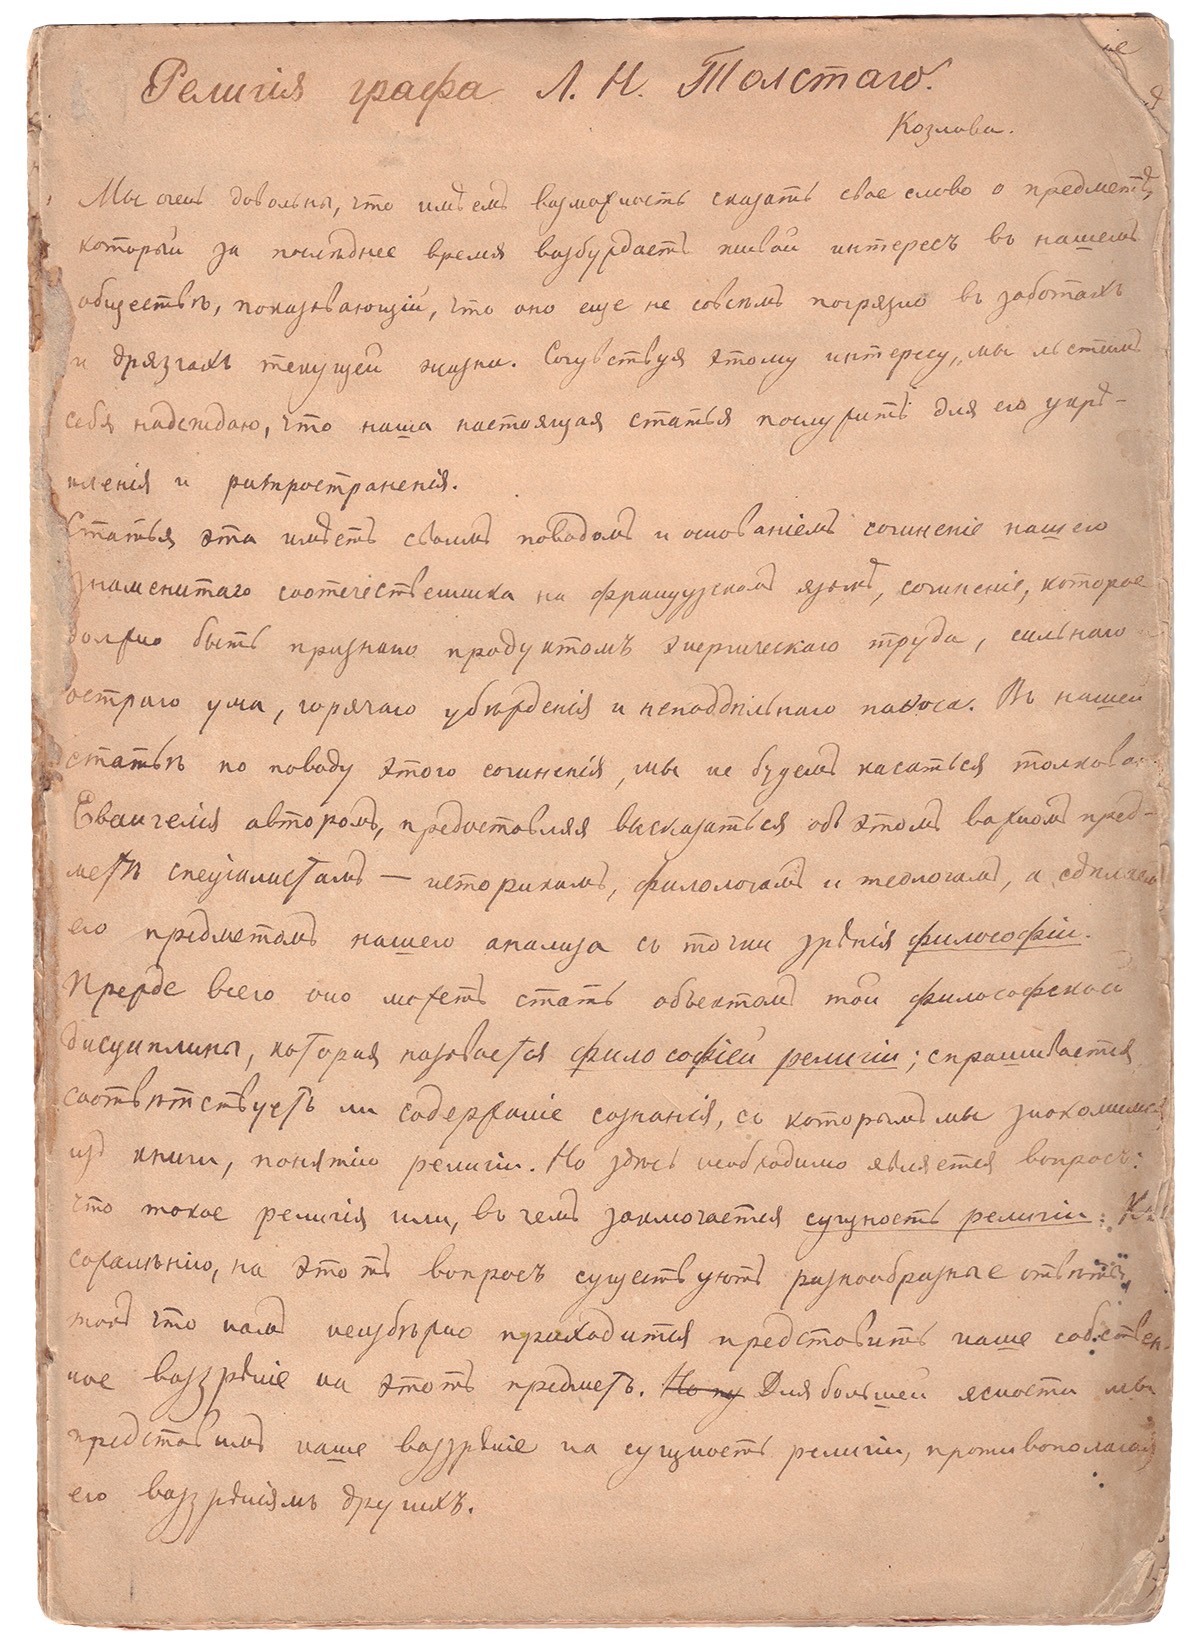 Религія графа Л. Н. Толстаго.
Козлова.
Мы очень довольны, что имѣемъ возможность сказать свое слово о предметѣ,
который за послѣднее время возбуждаетъ живой интересъ въ нашемъ
обществѣ, показывающій, что оно еще не совсѣмъ погрязло въ заботахъ
и дрязгахъ текущей жизни. Сочувствуя этому интересу, мы льстимъ
себя надеждаю, что наша настоящая статья послужитъ для его укрѣ-
пленія и распространенія.
Статья эта имѣетъ своимъ поводомъ и основаніемъ сочиненіе нашего
знаменитаго соотечественника на французскомъ языкѣ, сочиненіе, которое
должно быть признано продуктомъ энергическаго труда, сильнаго и
остраго ума, горячаго убѣжденія и неподдѣльнаго паѳоса. Въ нашей
статьѣ по поводу этого сочиненія, мы не будемъ касаться
Евангелія авторомъ, предоставляя высказаться объ этомъ важномъ пред-
метѣ спеціалистамъ — историкамъ, филологамъ и теологамъ, а сдѣлаемъ
его предметомъ нашего анализа съ точки зрѣнія философіи.
Прежде всего оно можетъ стать объектомъ той философской
дисциплины, которая называется философіей религіи; спрашивается
соотвѣтствуетъ ли содержаніе сознанія, съ которымъ мы знакомимся
изъ книги, понятію религіи. Но здѣсь необходимо является вопросъ:
что такое религія или, въ чемъ заключается сущность религіи: Къ
сожалѣнію, на этотъ вопросъ существуютъ разнообразные отвѣты,
такъ что намъ неизбѣжно приходится представить наше собствен-
ное воззрѣніе на этотъ предметъ. Но ну Для большей ясности мы
представимъ наше воззрѣніе на сущность религіи, противополагая
его воззрѣніямъ другихъ.